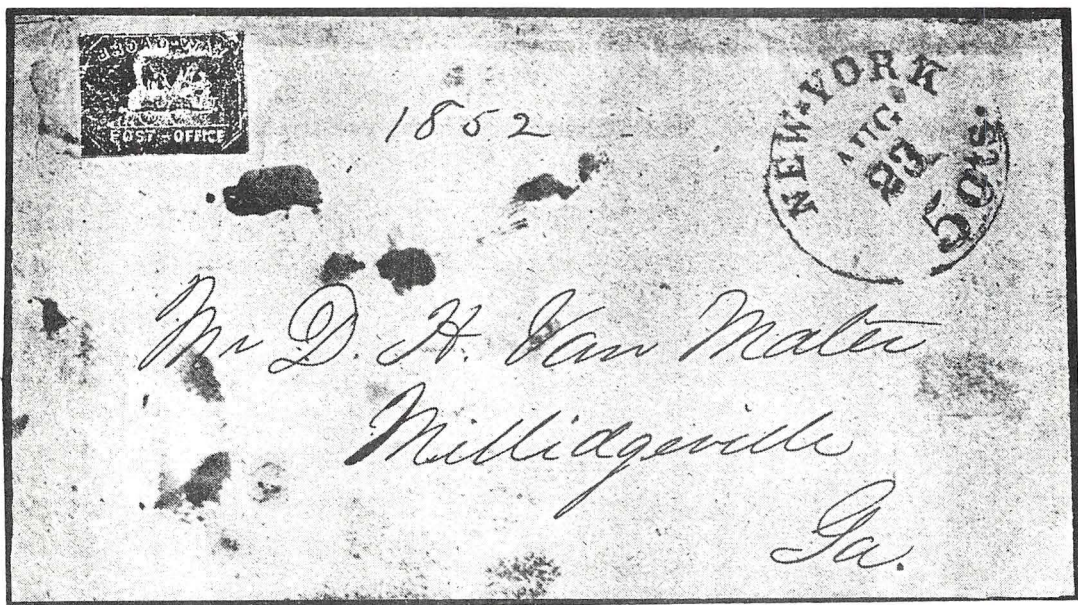 BROAD-WAY
POST-OFFICE
1852
NEW-YORK
AUG
23
5 cts.
Mr D. H. Van Mater
Millidgeville
Ga.